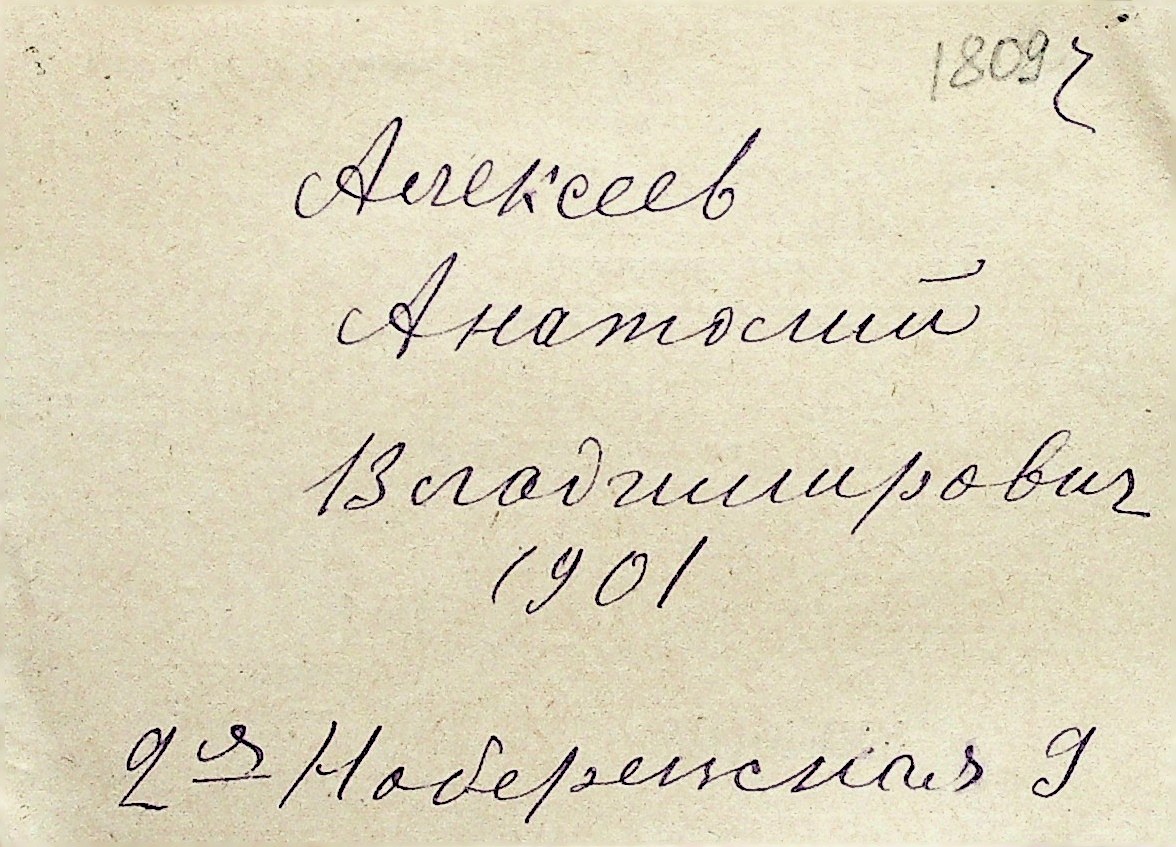 1809 ч
Алексеев
Анатолий
Владимирович
1901
2я Набережная 9